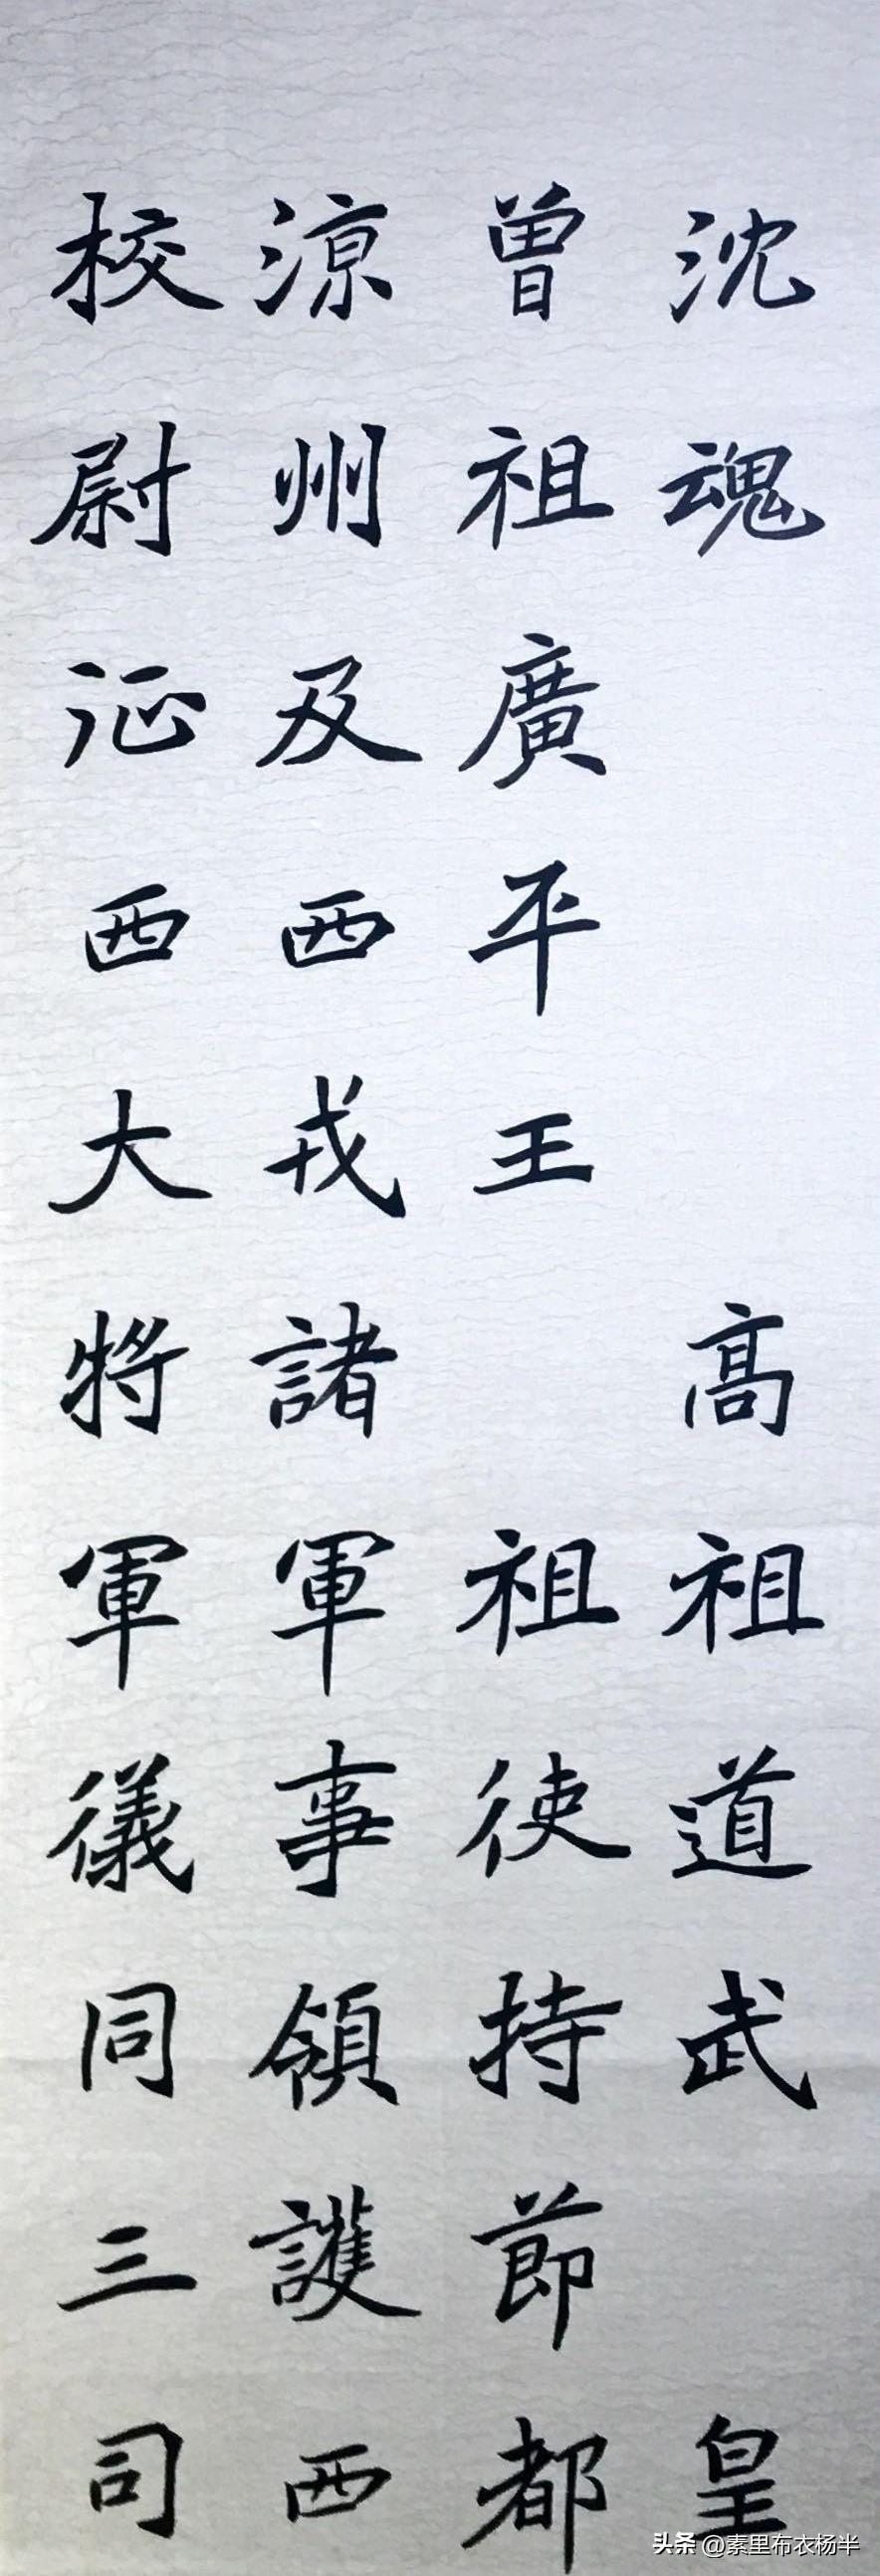 沈魂 高祖道武 皇
曾祖廣平王 祖使持節都
涼州及西戎諸軍事領護西
校尉征西大將軍儀同三司
头条 @素里布衣杨半